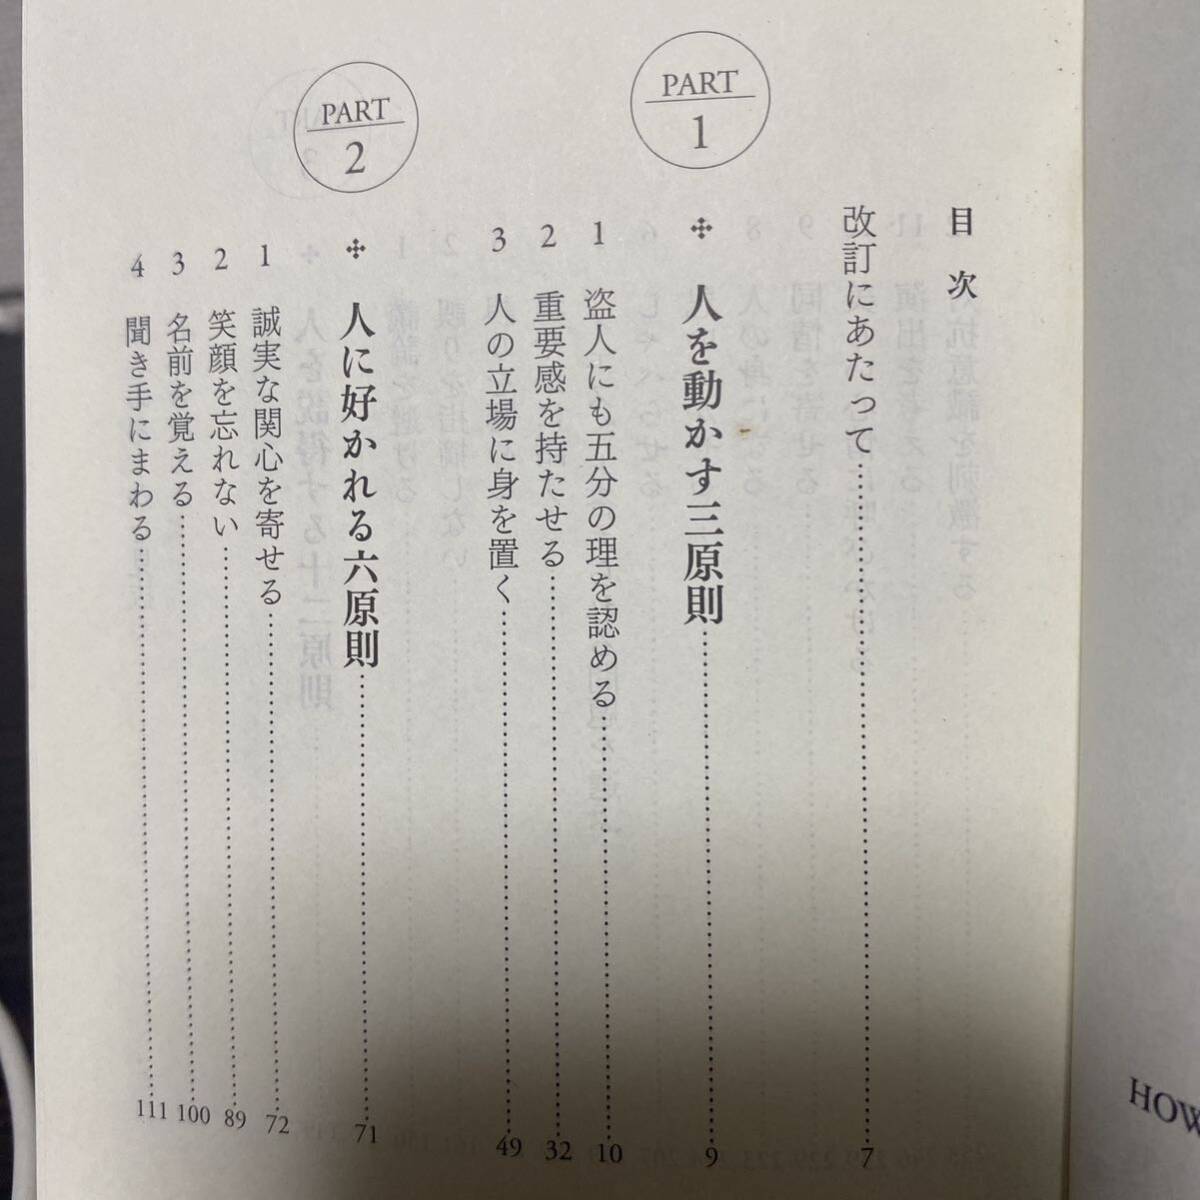 目次
改訂にあたって……7
PART
1
人を動かす三原則……9
1 盗人にも五分の理を認める……10
2 重要感を持たせる……32
3 人の立場に身を置く……49
PART
2
人に好かれる六原則……71
1 誠実な関心を寄せる……72
2 笑顔を忘れない……89
3 名前を覚える……100
4 聞き手にまわる……111
HOW